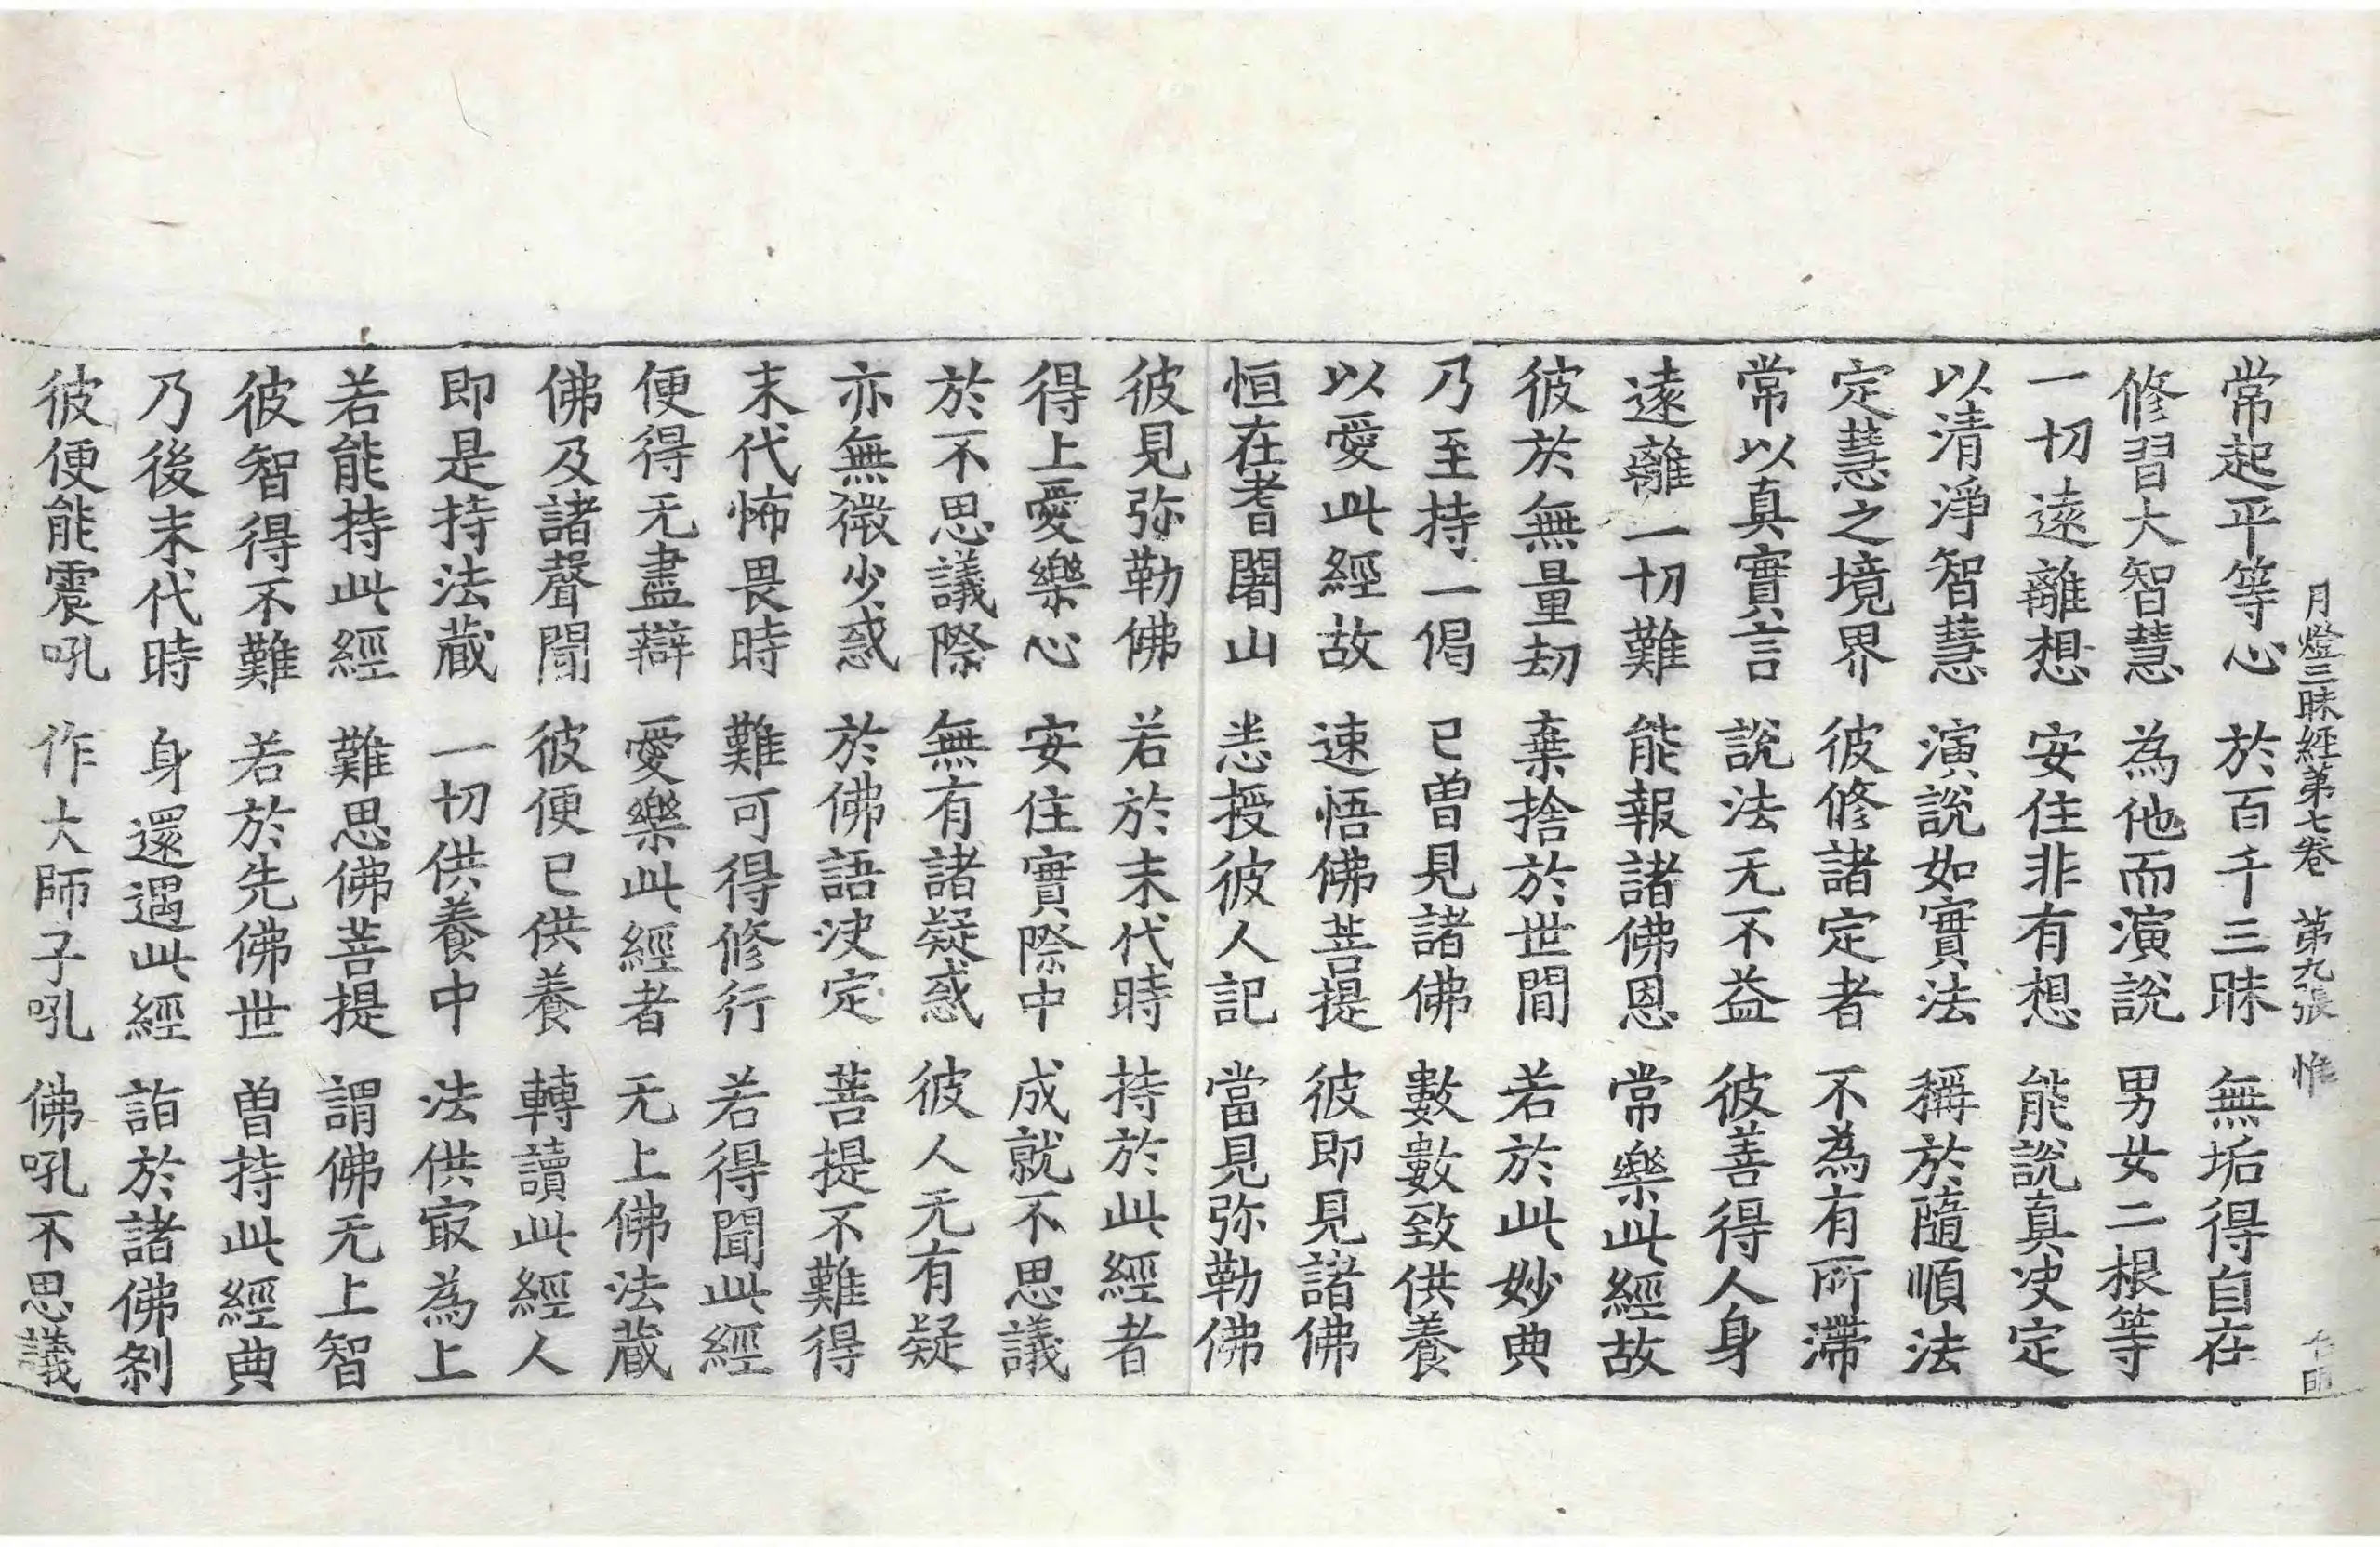 月燈三昧經第七卷 第九張 惟
常起平等心 於百千三昧 無垢得自在
修習大智慧 為他而演說 男女二根等
一切遠離想 安住非有想 能說真决定
以清淨智慧 演說如實法 稱於隨順法
定慧之境界 彼修諸定者 不為有所滯
常以真實言 說法无不益 彼善得人身
遠離一切難 能報諸佛恩 常樂此經故
彼於無量劫 棄捨於世間 若於此妙典
乃至持一偈 已曾見諸佛 數數致供養
以愛此經故 速悟佛菩提 彼即見諸佛
恒在耆闍山 悉授彼人記 當見弥勒佛
彼見弥勒佛 若於末代時 持於此經者
得上愛樂心 安住實際中 成就不思議
於不思議際 無有諸疑惑 彼人无有疑
亦無微少惑 於佛語决定 菩提不難得
末代怖畏時 難可得修行 若得聞此經
便得无盡辯 愛樂此經者 无上佛法藏
佛及諸聲聞 彼便已供養 轉讀此經人
即是持法藏 一切供養中 法供㝡為上
若能持此經 難思佛菩提 謂佛无上智
彼智得不難 若於先佛世 曾持此經典
乃後末代時 身還遇此經 詣於諸佛剎
彼便能震吼 作大師子吼 佛吼不思議